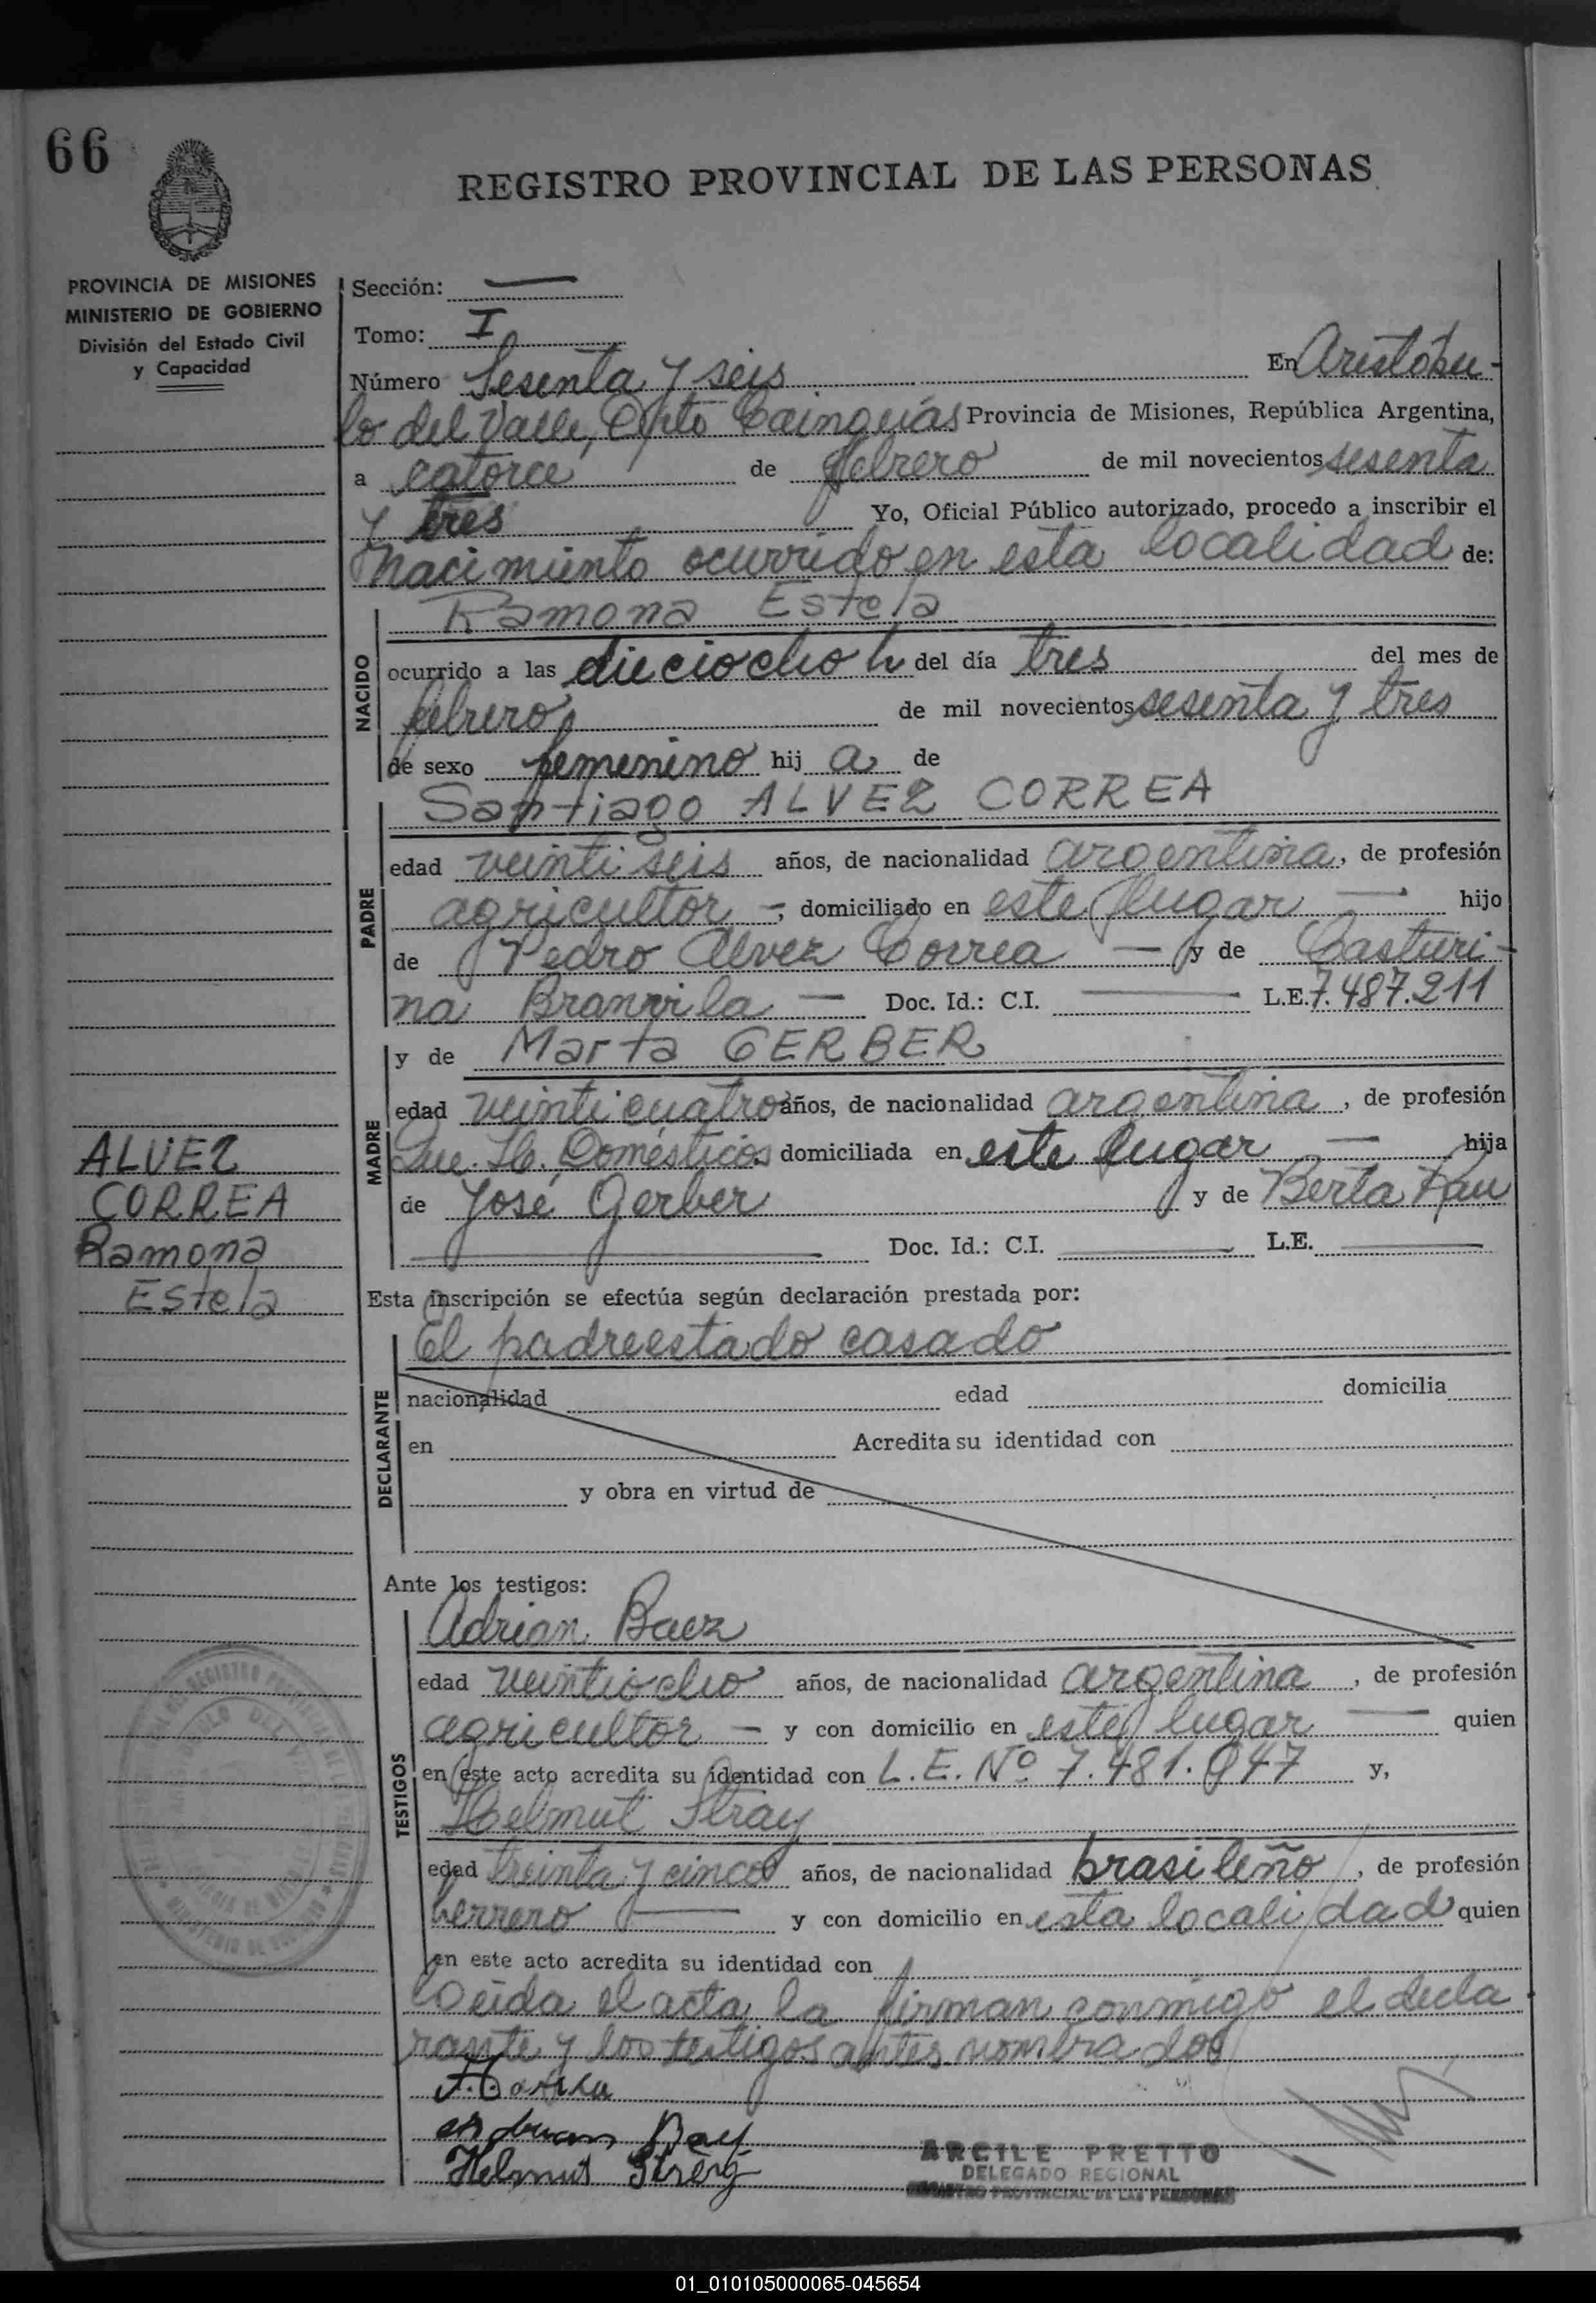 66
REGISTRO PROVINCIAL DE LAS PERSONAS
PROVINCIA DE MISIONES
MINISTERIO DE GOBIERNO
División del Estado Civil
y Capacidad
Sección: —
Tomo: I
Número Sesenta y seis En Aristóbu-
lo del Valle, Dpto Cainguás Provincia de Misiones, República Argentina,
a catorce de febrero de mil novecientos sesenta
y tres Yo, Oficial Público autorizado, procedo a inscribir el
nacimiento ocurrido en esta localidad de:
NACIDO
Ramona Estela
ocurrido a las dieciocho h del día tres del mes de
febrero de mil novecientos sesenta y tres
de sexo femenino hij a de
PADRE
Santiago ALVEZ CORREA
edad veintiseis años, de nacionalidad argentina, de profesión
agricultor -, domiciliado en este lugar — hijo
de Pedro Alvez Correa — y de Casturi-
na — Doc. Id.: C.I. — L.E. 7.487.211
MADRE
y de Marta GERBER
edad veinticuatro años, de nacionalidad argentina, de profesión
Domésticos domiciliada en este lugar — hija
de José Gerber y de Berta
— Doc. Id.: C.I. — L.E. —
ALVEZ
CORREA
Ramona
Estela
Esta inscripción se efectúa según declaración prestada por:
DECLARANTE
El padre estado casado
nacionalidad edad domicilia
en Acredita su identidad con
y obra en virtud de
Ante los testigos:
TESTIGOS
Adrian Baez
edad veintiocho años, de nacionalidad argentina, de profesión
agricultor — y con domicilio en este lugar — quien
en este acto acredita su identidad con L.E. Nº 7.481.947 y,
Helmut Stray
edad treinta y cinco años, de nacionalidad brasileño, de profesión
herrero — y con domicilio en esta localidad quien
en este acto acredita su identidad con
Leída el acta la firman conmigo el decla
rante y los testigos antes nombrados
Helmut
ARCILE PRETTO
DELEGADO REGIONAL
REGISTRO PROVINCIAL DE LAS PERSONAS
01_010105000065-045654